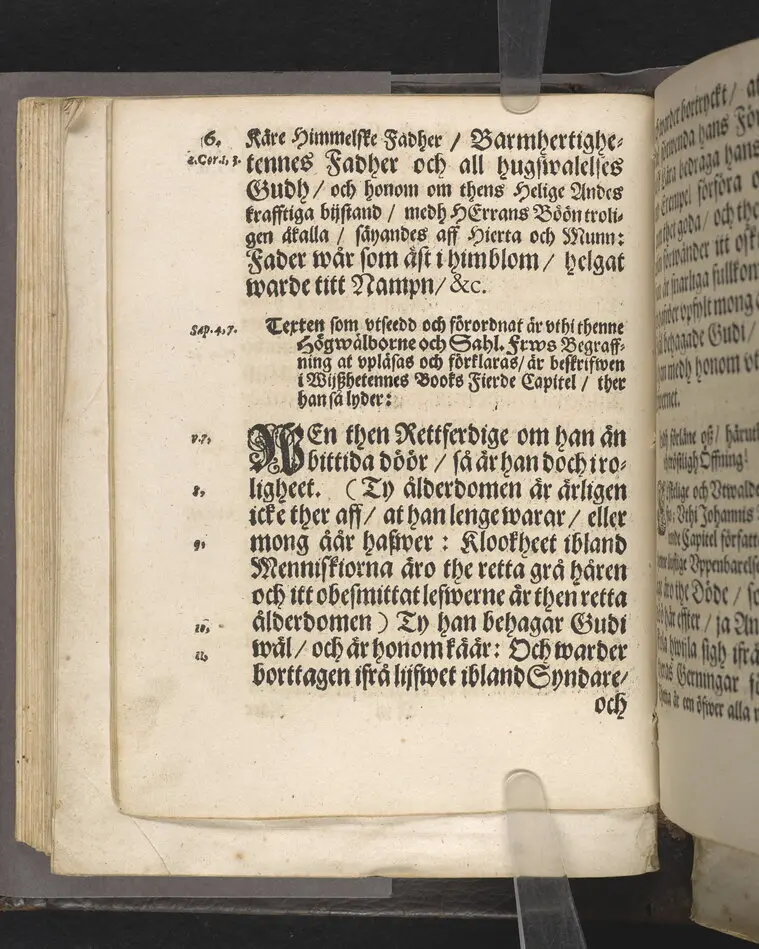 6. Käre Himmelske Fadher / Barmhertighe-
2.Cor.1, 3. tennes Fadher och all hugswalelses
Gudh / och honom om thens Helige Andes
krafftiga bijstand / medh HErrans Böön troli-
gen åkalla / säyandes aff Hierta och Munn:
Fader wår som äst i himblom / helgat
warde titt Nampn / &c.
Sap. 4, 7. Texten som vtseedd och förordnat är vthi thenne
Högwälborne och Sahl. Frws Begraff-
ning at vpläsas och förklaras / är beskrifwen
i Wijßhetennes Books Fierde Capitel / ther
han så lyder:
v. 7, MEn then Rettferdige om han än
bittida döör / så är han doch i ro-
8, ligheet. (Ty ålderdomen är ärligen
icke ther aff / at han lenge warar / eller
9, mong åår haßwer : Klookheet ibland
Menniskiorna äro the retta grå håren
och itt obesmittat lefwerne är then retta
10, ålderdomen) Ty han behagar Gudi
11, wäl / och är honom käär: Och warder
borttagen ifrå lijfwet ibland Syndare /
och
bortryckt / at
hans För
bedraga hans
Exempel förföra
goda / och the
itt
snarliga fullkom
vpfylt mong
behagade Gudi /
medh honom vt
förläne oß /
Öffning!
och Vtwalde
Vthi Johannis
Capitel författ
Vppenbarelse
the Döde / so
här effter / ja An
hwijla sigh ifrå
Gerningar
är em öfwer alla